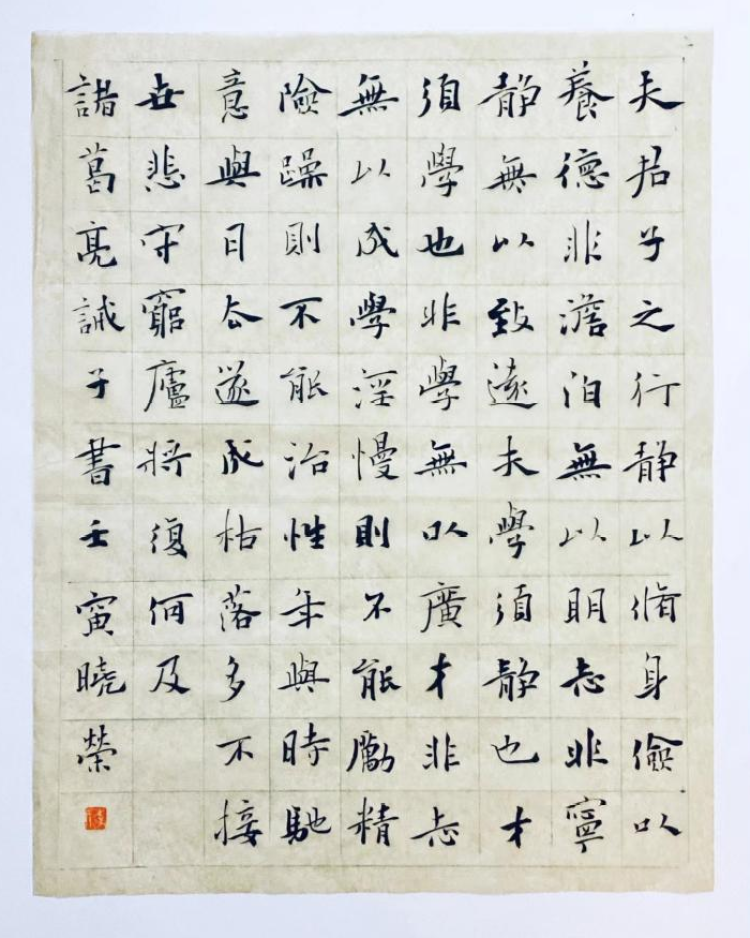 夫君子之行靜以脩身儉以
養德非澹泊無以明志非寧
靜無以致遠夫學須靜也才
須學也非學無以廣才非志
無以成學淫慢則不能勵精
險躁則不能治性年與時馳
意與日去遂成枯落多不接
世悲守窮廬將復何及
諸葛亮誡子書壬寅曉榮